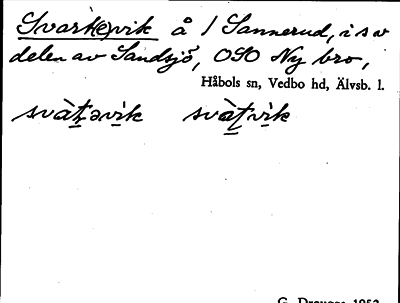 Svart(e)vik å 1 Sannerud, i s v
delen av Sandsjö, OSO Ny bro,
Håbols sn, Vedbo hd, Älvsb. l.
svàt̠əvi̠k svàt̠vi̠k